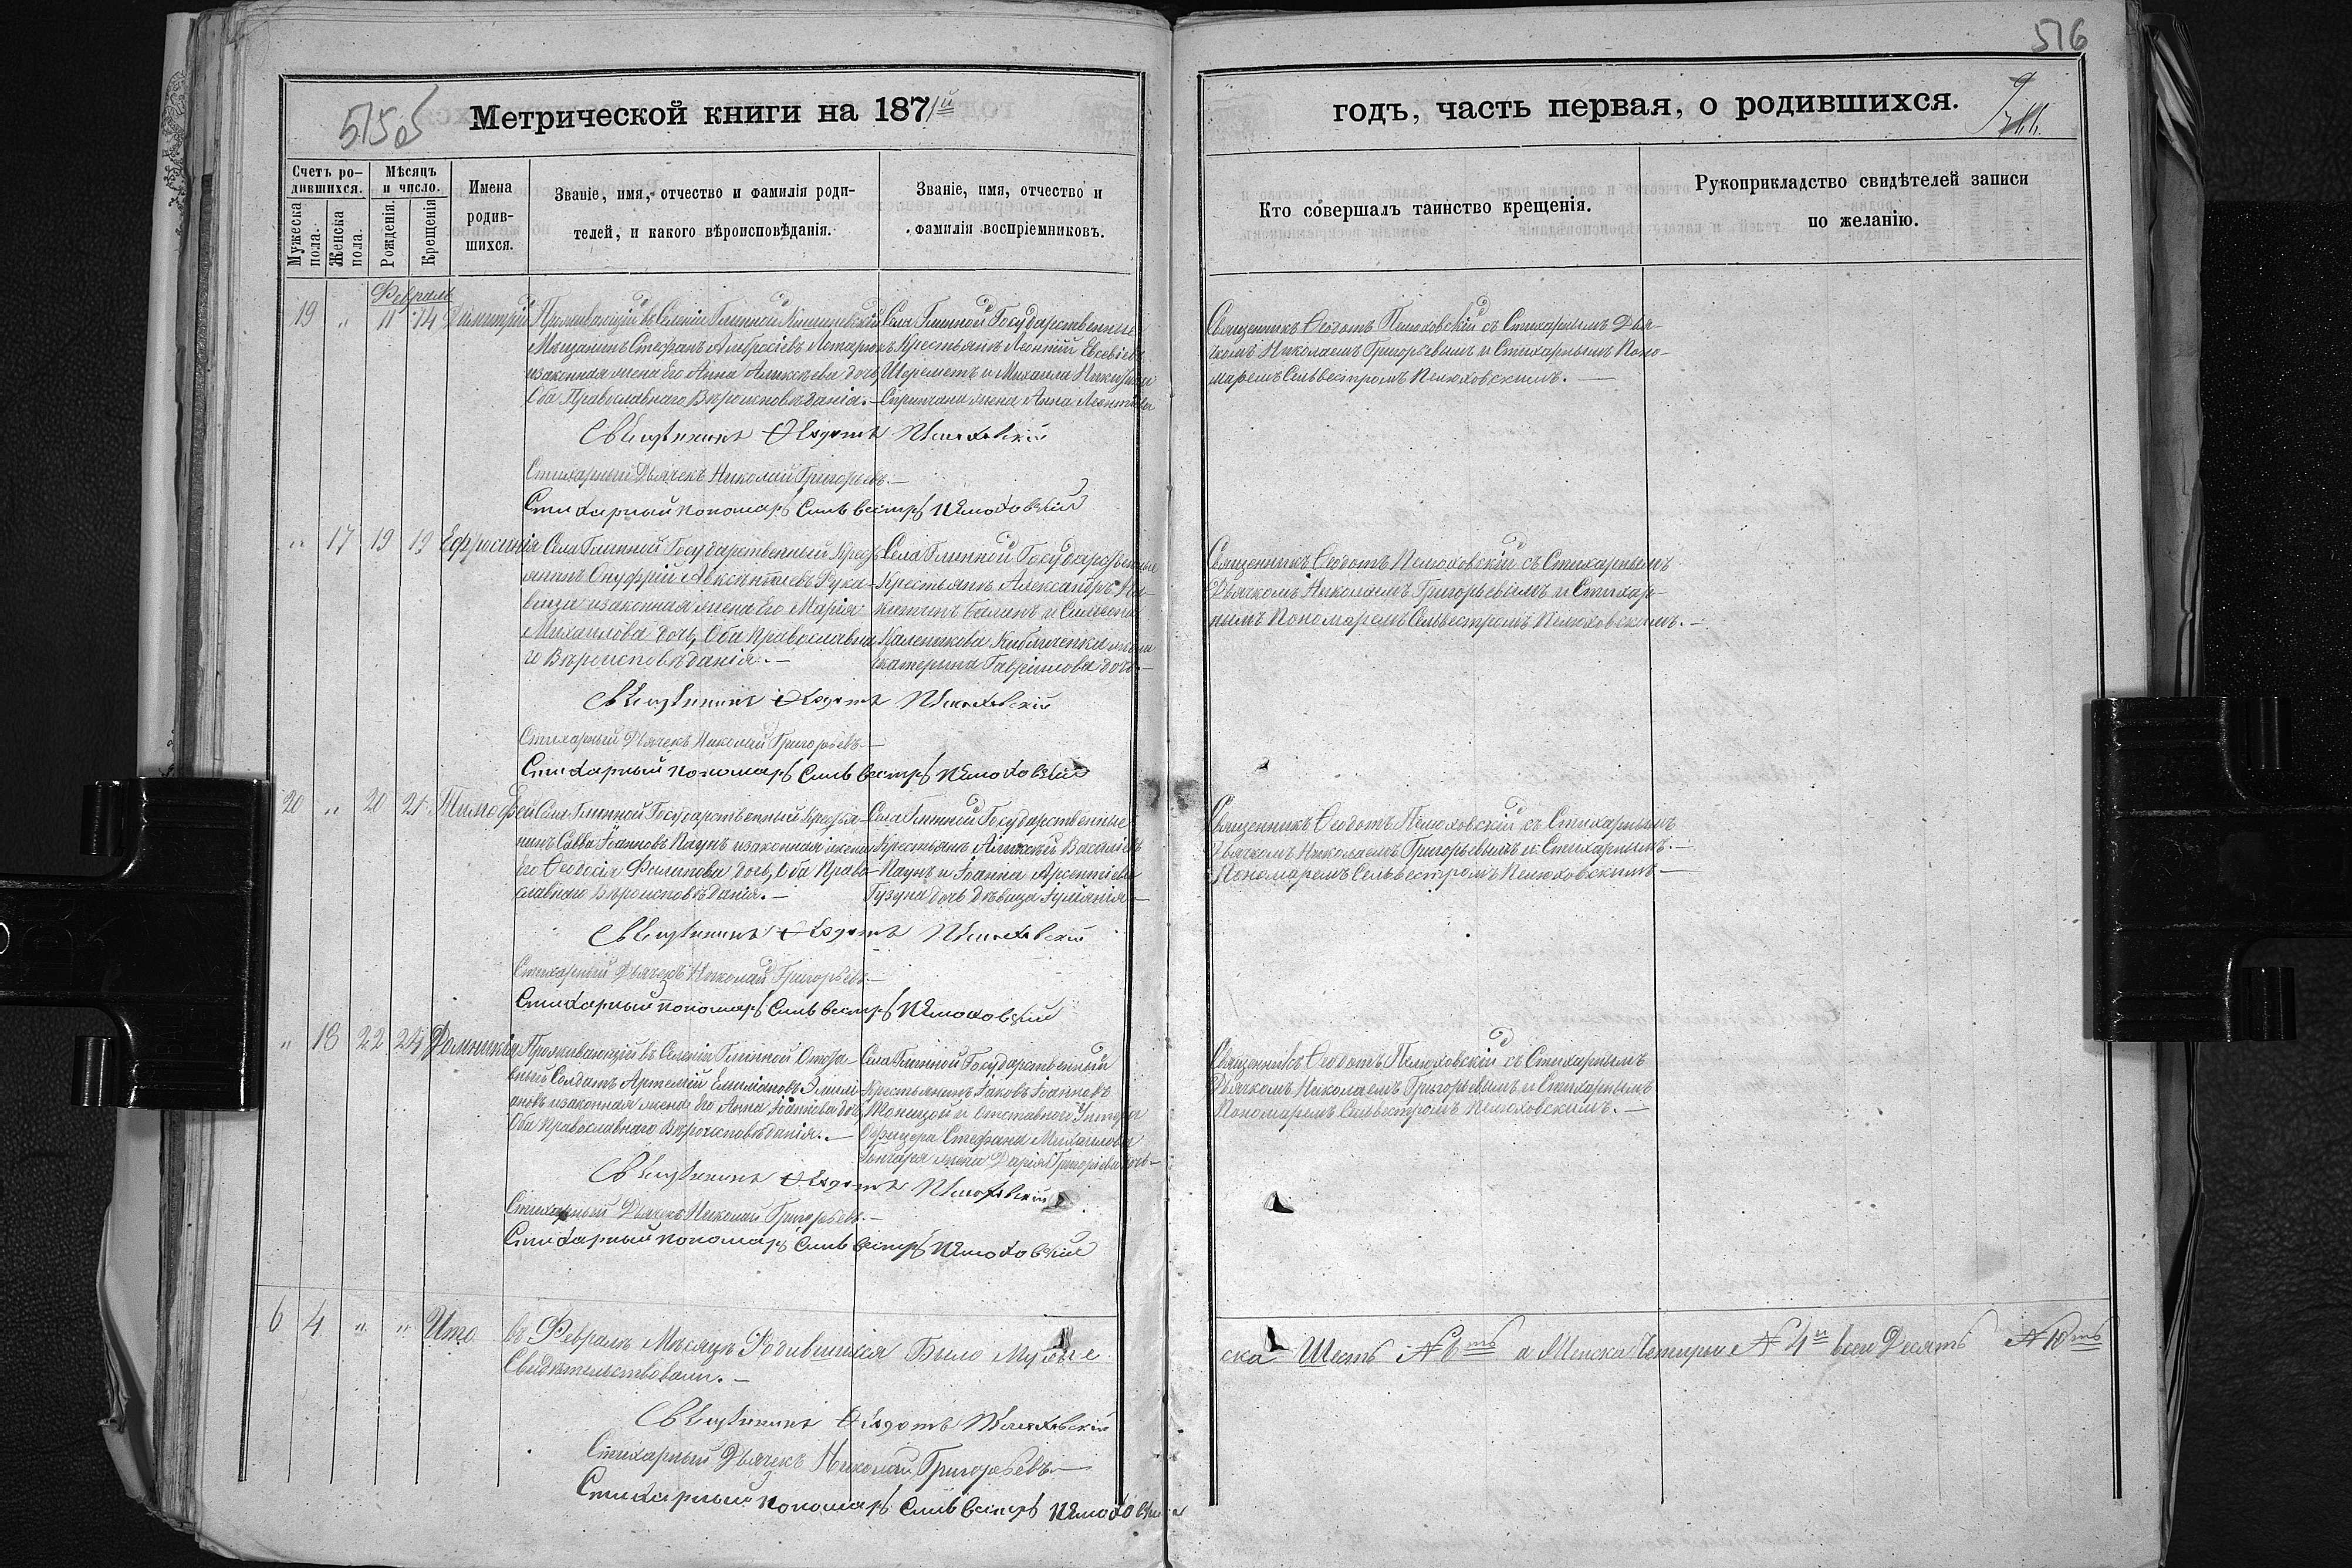 516
515об
Метрической книги на 1871й
годъ, часть первая, о родившихся.
Счетъ родившихся.
Мужеска пола.
Женска пола.
Мѣсяцъ и число.
Рожденія.
Крещенія.
Имена родившихся.
Званіе, имя, отчество и фамилія родителей, и какого вѣроисповѣданія.
Званіе, имя, отчество и фамилія воспріемниковъ.
Кто совершалъ таинство крещенія.
Рукоприкладство свидѣтелей записи по желанію.
Февраль
19 „ 11 14 Димитрій
Проживающій въ Селеніи Глинной Кишиневскій
Мещанинъ Стефанъ Амвросіевъ
изаконная жена Его Анна Алексѣева дочь
Оба Православнаго Вѣроисповѣданія.—
Села Глинной Государственные
Крестьянъ Леонтій Евсевіевъ
Шереметъ и Михаила
жена Анна Леонтіева
Священникъ Ѳеодотъ Пелюховскій съ Стихарнымъ Дья-
комъ Николаемъ Григорьевымъ и Стихарнымъ Поно-
маремъ Сельвестромъ Пелюховскимъ.—
Священникъ Ѳеодотъ Пелюховскій
Стихарный Дьячекъ Николай Григорьевъ.—
Стихарный пономарь Сильвестръ Пелюховскій
„ 17 19 19 Ефросинія
Села Глинной Государственный Кресть-
янинъ Онуфрій Авксентіевъ Рука-
вица изаконная жена Его Марія
Михаилова дочь, Оба Православна-
го Вѣроисповѣданія.—
Села Глинной Государственные
Крестьянъ Александръ Ни-
китинъ Баланъ и Симеона
Каленикова жена
Екатерина Гавріилова дочь—
Священникъ Ѳеодотъ Пелюховскій съ Стихарнымъ
Дьякомъ Николаемъ Григорьевымъ и Стихар-
нымъ Пономаремъ Сельвестромъ Пелюховскимъ.—
Священникъ Ѳеодотъ Пелюховскій
Стихарный Дьячекъ Николай Григорьевъ.—
Стихарный пономарь Сильвестръ Пелюховскій
20 „ 20 21 Тимофей
Села Глинной Государственный Крестья-
нинъ Савва Іоанновъ Паунъ изаконная жена
Его Ѳеодосія Филипова дочь, Оба Право-
славнаго Вѣроисповѣданія.—
Села Глинной Государственные
Крестьянъ Алексѣй Василіевъ
Паунъ и Іоанна Арсентіева
Гузуна дочь дѣвица Іуліанія—
Священникъ Ѳеодотъ Пелюховскій съ Стихарнымъ
Дьячкомъ Николаемъ Григорьевымъ и Стихарнымъ.—
Пономаремъ Сельвестромъ Пелюховскимъ—
Священникъ Ѳеодотъ Пелюховскій
Стихарный Дьячекъ Николай Григорьевъ—
Стихарный пономарь Сильвестръ Пелюховскій
„ 18 22 24 Домникія
Проживающій въ Селеніи Глинной Отста-
вный Солдатъ Артемій Емиліановъ Эмили-
ановъ изаконная жена Его Анна Іоаннова дочь,
Оба Православнаго Вѣроисповѣданія.—
Села Глинной Государственный
Крестьянинъ Іаковъ Іоанновъ
и Отставного Унтеръ
Офицера Стефана Михаилова
Гончара жена Дарія Григоріева дочь—
Священникъ Ѳеодотъ Пелюховскій съ Стихарнымъ
Дьякомъ Николаемъ Григорьевымъ и Стихарнымъ
Пономаремъ Сельвестромъ Пелюховскимъ.—
Священникъ Ѳеодотъ Пелюховскій
Стихарный Дьячекъ Николай Григорьевъ.—
Стихарный пономарь Сильвестръ Пелюховскій
6 4 „ „ Итого
въ Февралѣ Мѣсяцѣ Родившихся Было Муже
ска Шесть №6ть а Женска Четыри №4и всего Десять №10ть
Свидѣтельствовали.—
Священникъ Ѳеодотъ Пелюховскій
Стихарный Дьячекъ Николай Григорьевъ—
Стихарный пономарь Сильвестръ Пелюховскій